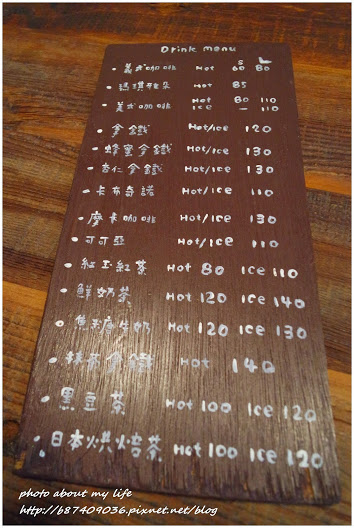 Drink menu
S L
義式咖啡 Hot 60 80
瑪琪雅朵 Hot 85
美式咖啡 Hot 80 110
Ice — 110
拿鐵 Hot/Ice 120
蜂蜜拿鐵 Hot/Ice 130
杏仁拿鐵 Hot/Ice 130
卡布奇諾 Hot/Ice 110
摩卡咖啡 Hot/Ice 130
可可亞 Hot/Ice 110
紅玉紅茶 Hot 80 Ice 110
鮮奶茶 Hot 120 Ice 140
焦糖牛奶 Hot 120 Ice 130
抹茶拿鐵 Hot 140
黑豆茶 Hot 100 Ice 120
日本烘焙茶 Hot 100 Ice 120
photo about my life
http://b87409036.pixnet.net/blog